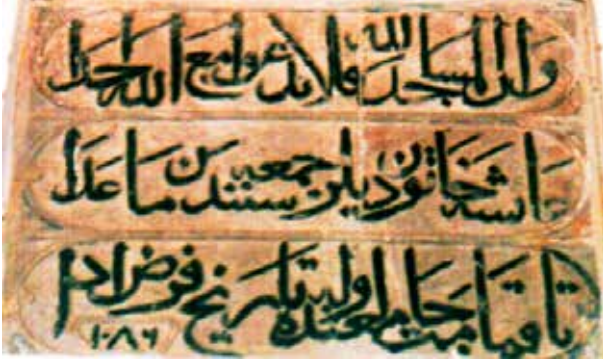 وان المساجد لله فلا تدعوا مع الله احدا
عائشه خاتون ديلر جمعه سندن ما عدا
تا قيامت جامعنده اوله تاريخ فرض ادا ١٠٨٦